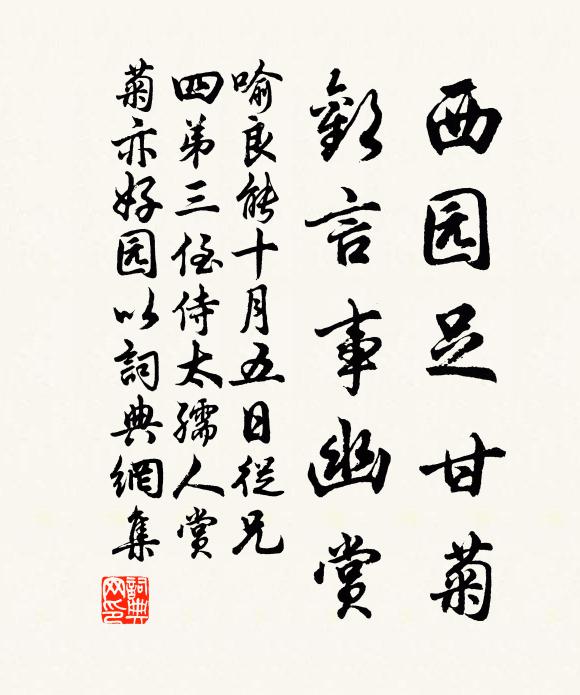 西园足甘菊
歡言事幽赏
喻良能十月五日從兄
四弟三侄侍太孺人赏
菊亦好园以詞典網集
詞典网印